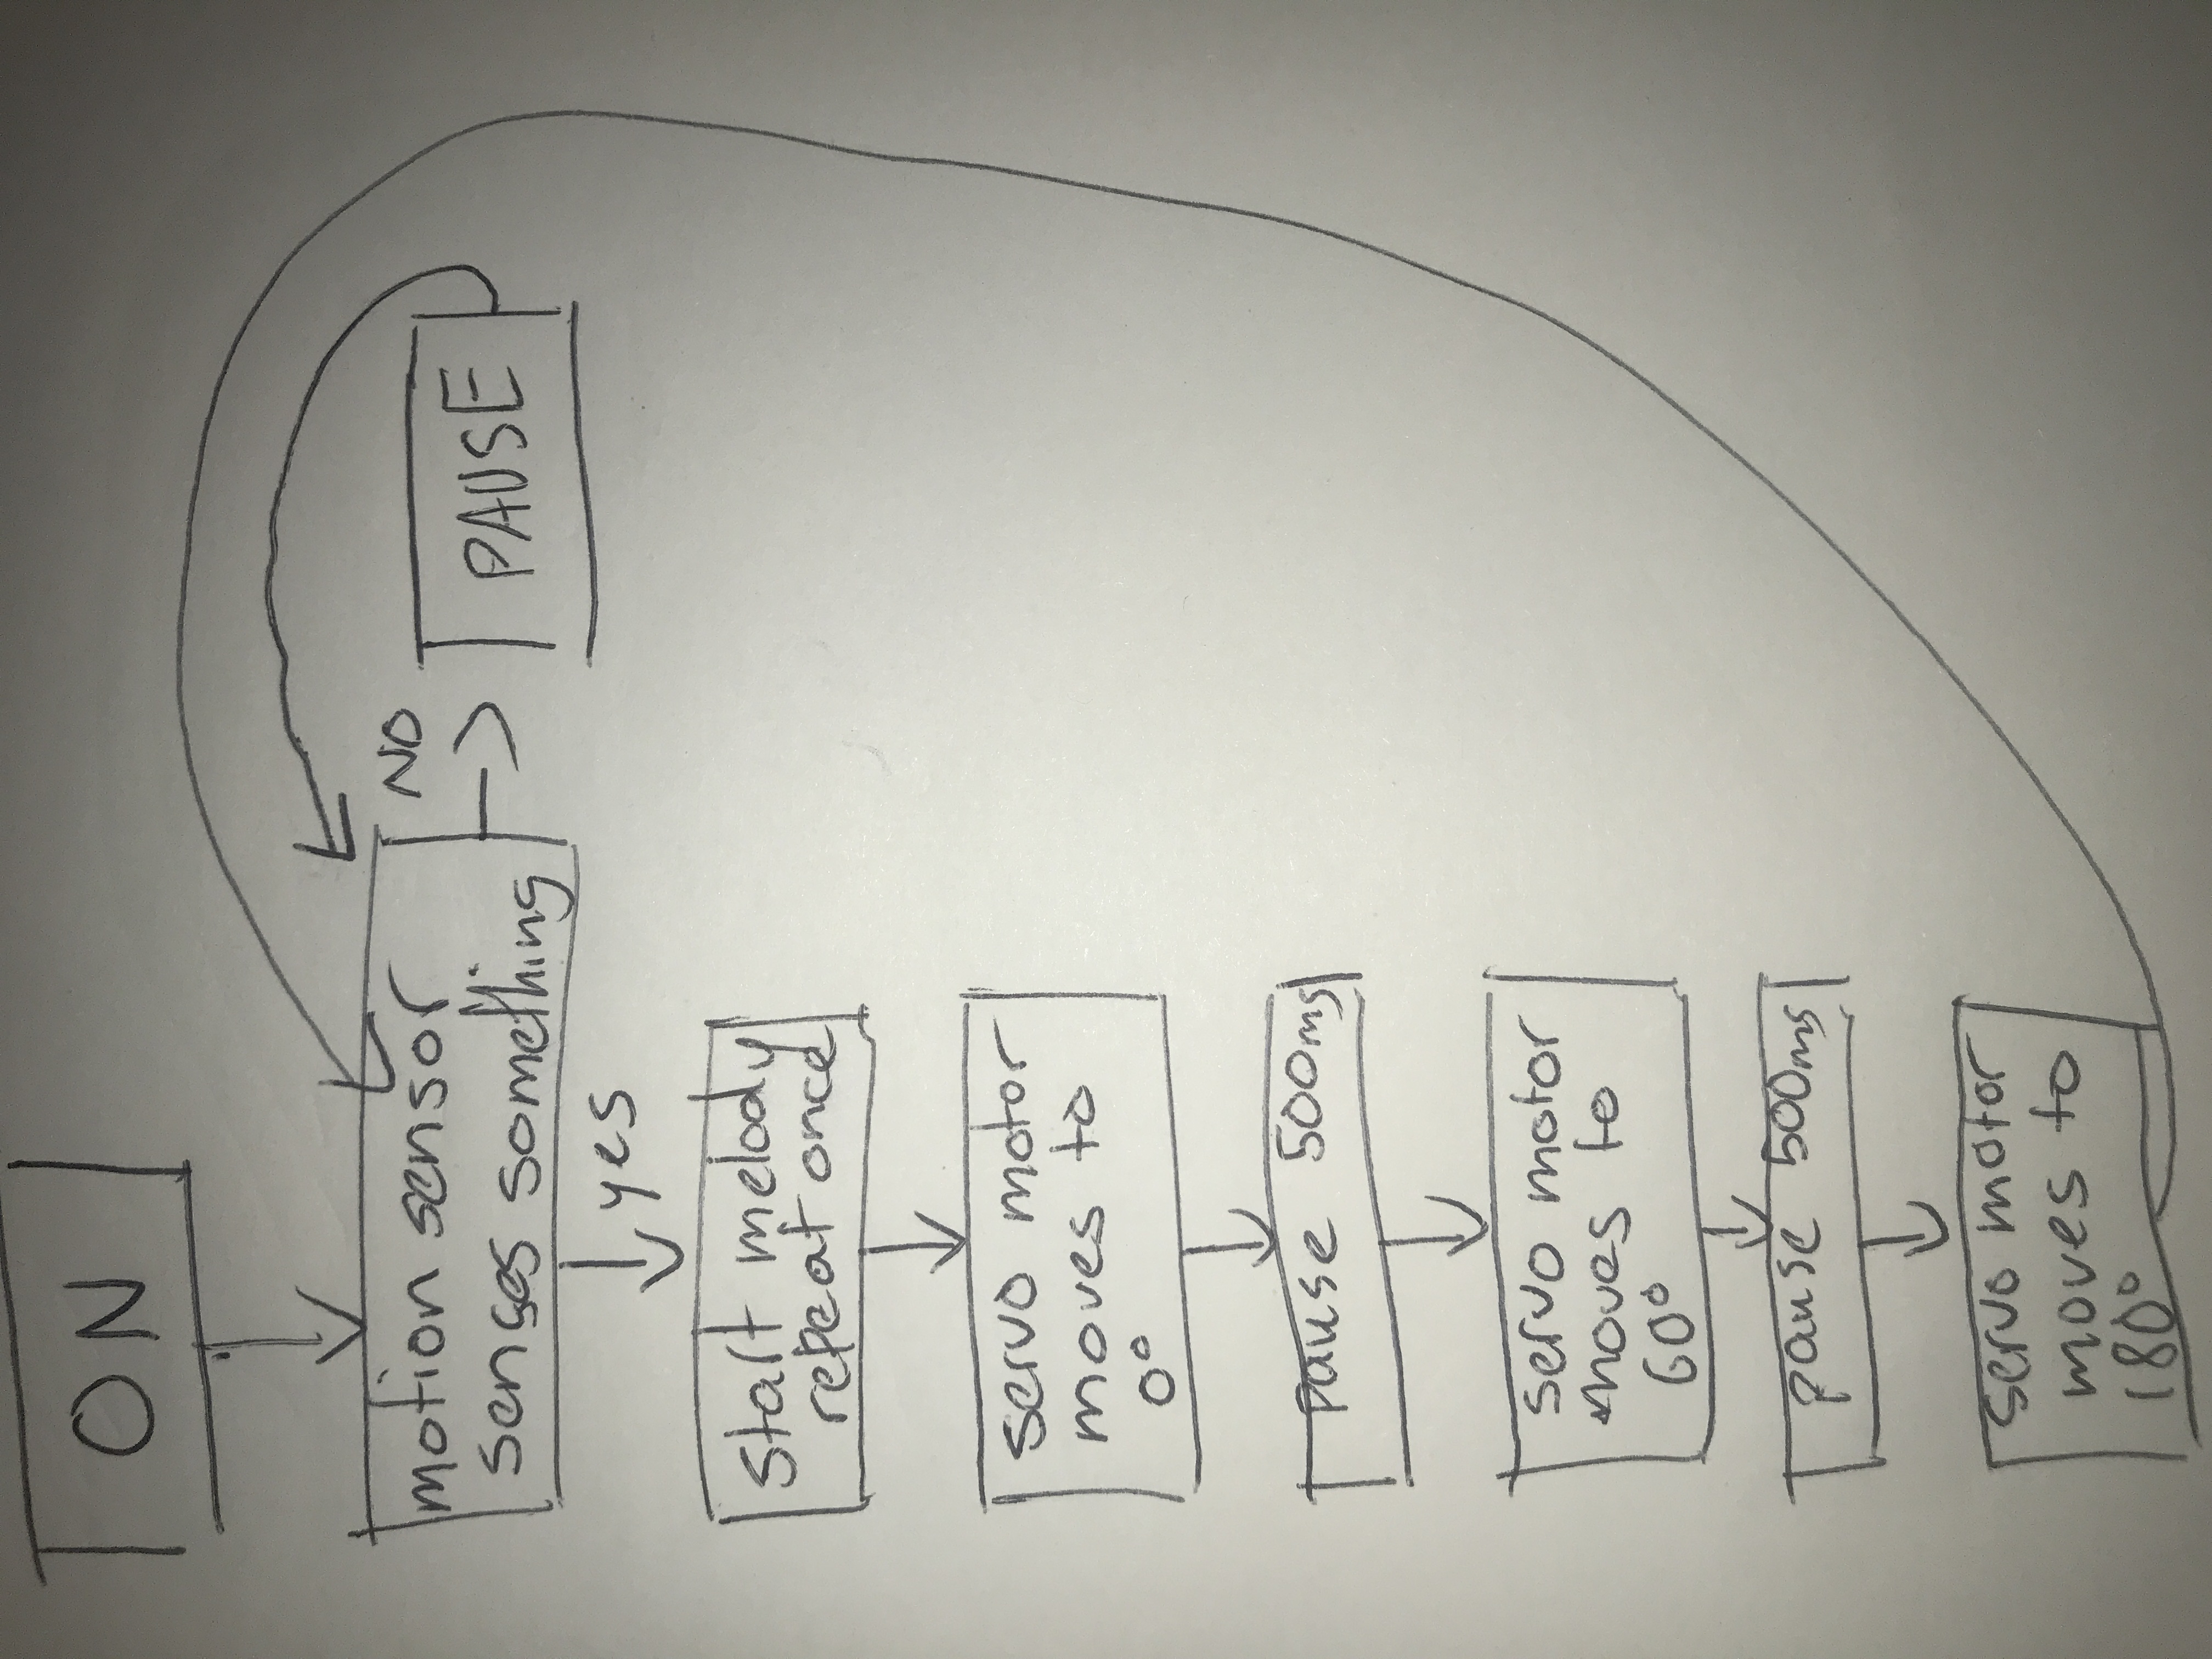 ON
motion sensor
senses something
NO
PAUSE
yes
start melody
repeat once
servo motor
moves to
0°
Pause 500ms
servo motor
moves to
60°
pause 500ms
servo motor
moves to
180°